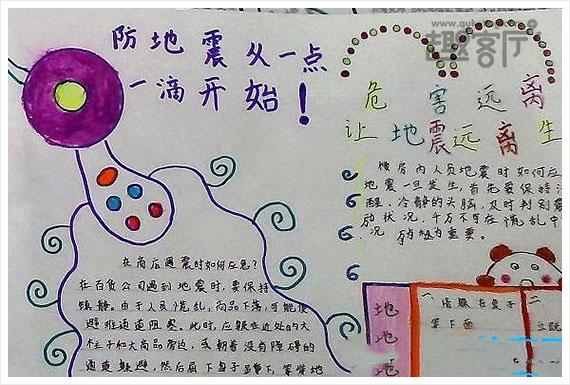 防地震从一点
一滴开始！
趣客厅
危害远离
让地震远离生
楼房内人员地震时如何应
地震一旦发生，首先要保持
醒、冷静的头脑，及时判别震
动状况，千万不可在慌乱中
况
为重要。
在商店遇震时如何应急？
在百货公司遇到地震时，要保持
镇静。由于人员慌乱，商品下落，可能使
避难通道阻塞。此时，应躲在近处的大
柱子和大商品旁边，或朝着没有障碍的
通道躲避，然后屈下身子蹲下，等待地
地
地
地
一
躲在桌子
等下面
二